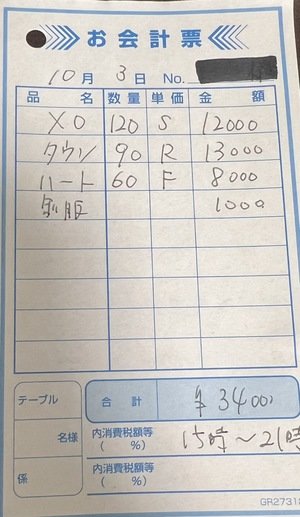 お会計票
10月 3日 No.
品名 数量 単価 金額
XO 120 S 12000
タウン 90 R 13000
ハート 60 F 8000
1000
テーブル 合計 ¥34000
名様 内消費税額等 ( %) 15時～21時
係 内消費税額等 ( %)
GR2731